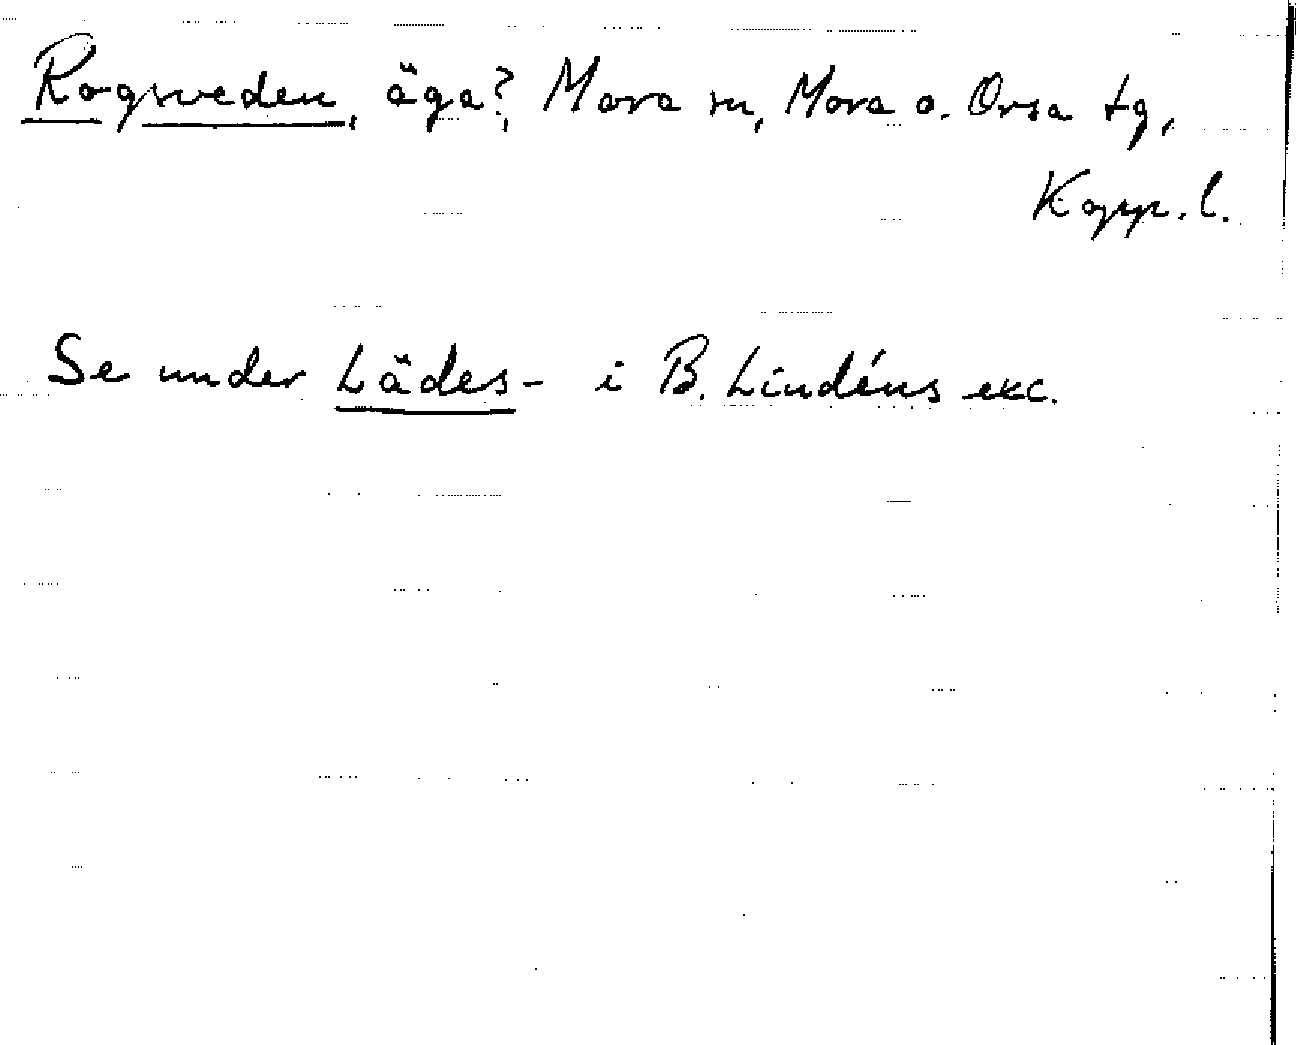 Rogsveden, äga?, Mora sn, Mora o. Orsa tg,
Kopp. l.
Se under Lädes- i B. Lindéns exc.